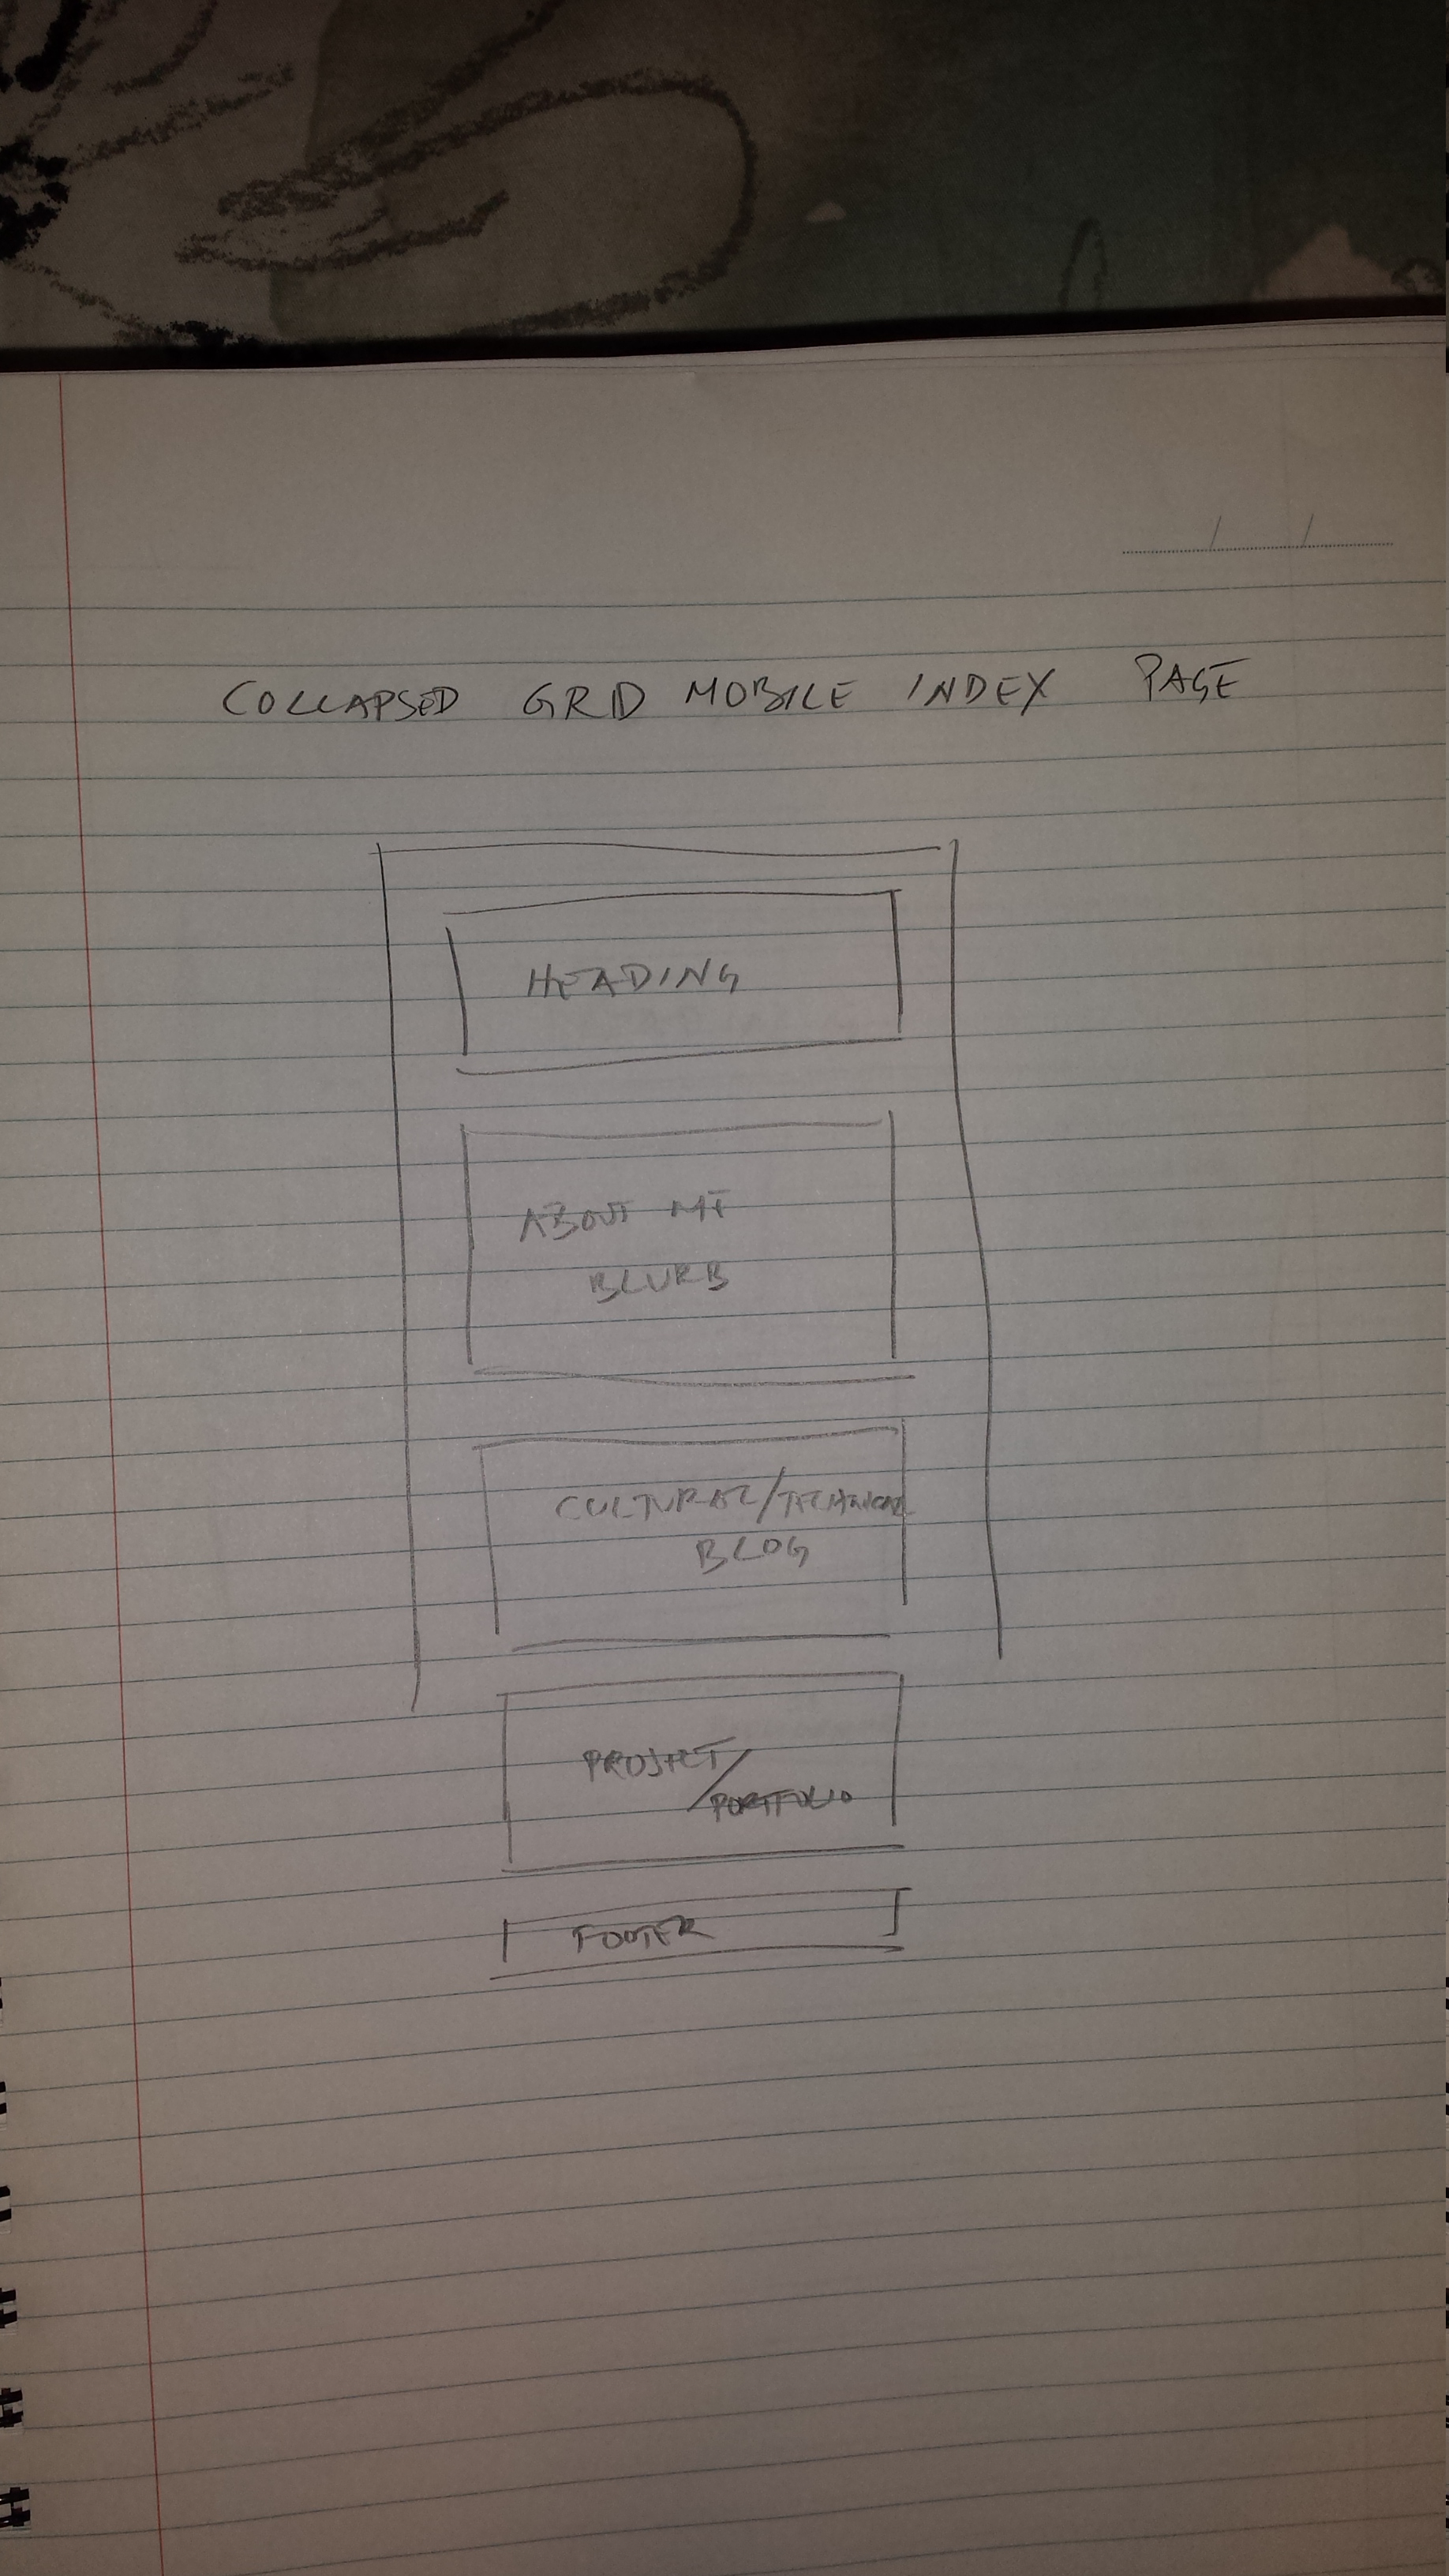 COLLAPSED GRID MOBILE INDEX PAGE
HEADING
ABOUT ME
BLURB
CULTURAL/TECHNICAL
BLOG
PROJECT/
PORTFOLIO
FOOTER